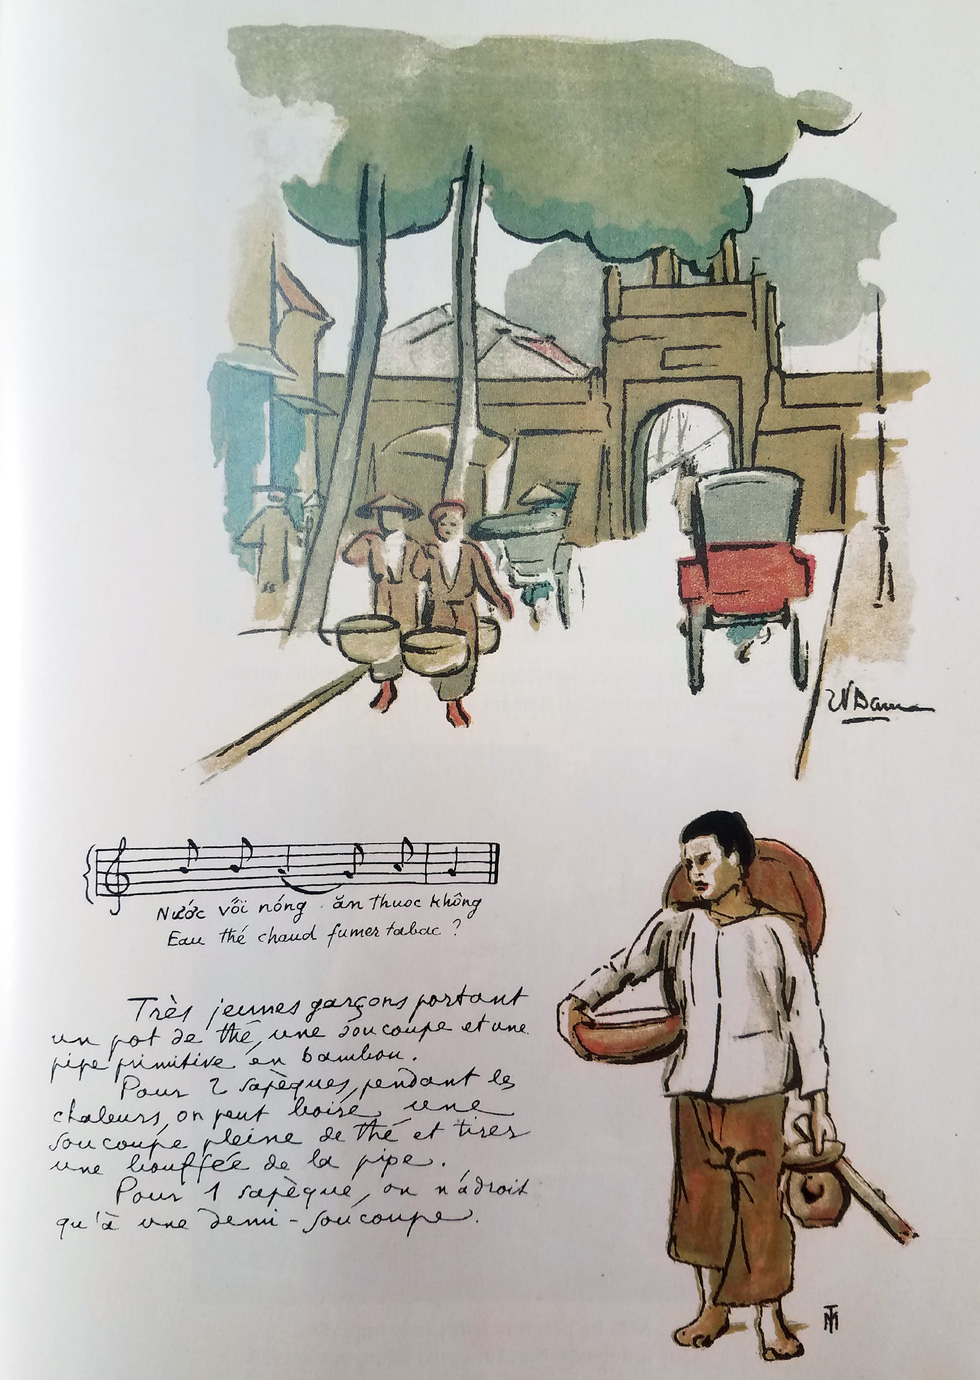 Nước vối nóng ăn thuoc không
Eau thé chaud fumer tabac ?
Très jeunes garçons portant
un pot de thé, une soucoupe et une
pipe primitive en bambou.
Pour 2 sapèques, pendant les
chaleurs, on peut boire une
soucoupe pleine de thé et tirer
une bouffée de la pipe.
Pour 1 sapèque, on n'a droit
qu'à une demi-soucoupe.